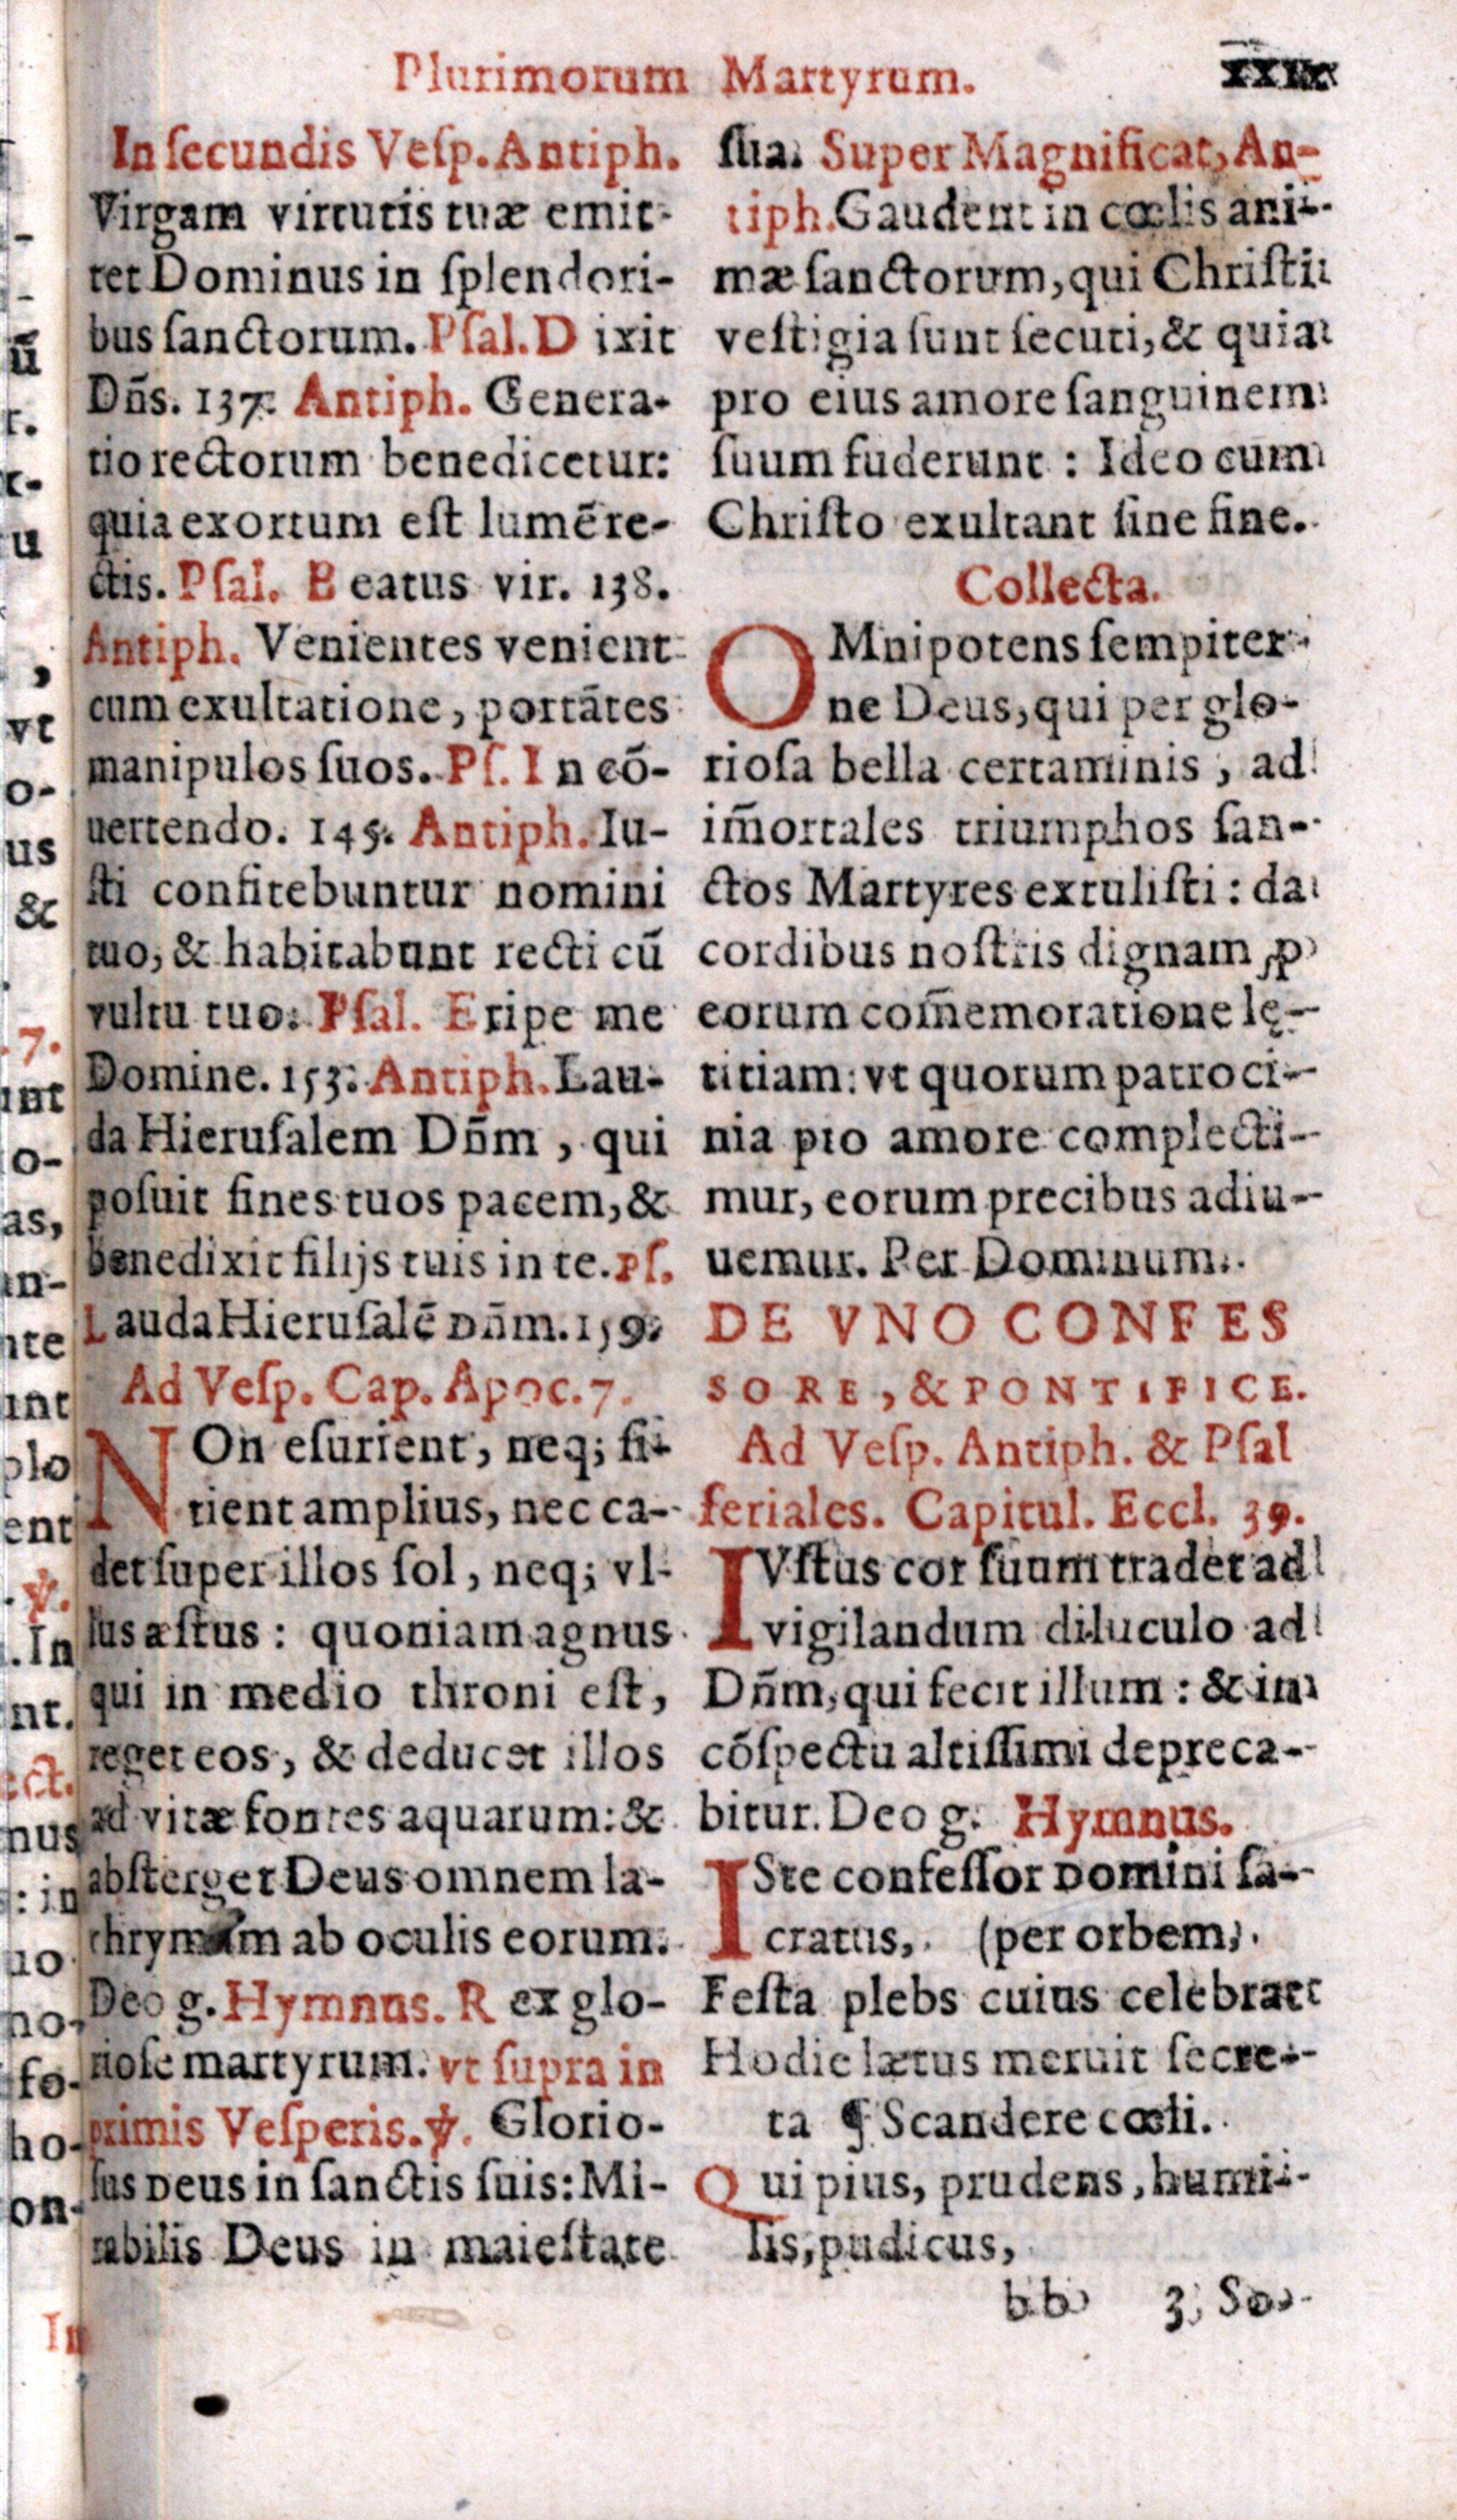 Plurimorum Martyrum.
In ſecundis Veſp. Antiph.
Virgam virtutis tuæ emit-
tet Dominus in ſplendori-
bus ſanctorum. Pſal. Dixit
Dñs. 137. Antiph. Genera-
tio rectorum benedicetur:
quia exortum eſt lumẽ re-
ctis. Pſal. Beatus vir. 138.
Antiph. Venientes venient
cum exultatione, portãtes
manipulos ſuos. Pſ. In cõ-
uertendo. 145. Antiph. Iu-
ſti confitebuntur nomini
tuo, & habitabunt recti cũ
vultu tuo. Pſal. Eripe me
Domine. 153. Antiph. Lau-
da Hieruſalem Dñm, qui
poſuit fines tuos pacem, &
benedixit filijs tuis in te. Pſ.
Lauda Hieruſalẽ Dñm. 159.
Ad Veſp. Cap. Apoc. 7.
NOn eſurient, neq; ſi-
tient amplius, nec ca-
det ſuper illos ſol, neq; vl-
lus æſtus: quoniam agnus
qui in medio throni eſt,
reget eos, & deducet illos
ad vitæ fontes aquarum: &
abſterget Deus omnem la-
chrymam ab oculis eorum.
Deo g. Hymnus. Rex glo-
rioſe martyrum. vt ſupra in
primis Veſperis. ℣. Glorio-
ſus Deus in ſanctis ſuis: Mi-
rabilis Deus in maieſtate
ſua. Super Magnificat, An-
tiph. Gaudent in cœlis ani-
mæ ſanctorum, qui Chriſti
veſtigia ſunt ſecuti, & quia
pro eius amore ſanguinem
ſuum fuderunt: Ideo cum
Chriſto exultant ſine fine.
Collecta.
OMnipotens ſempiter
ne Deus, qui per glo-
rioſa bella certaminis, ad
im̃ortales triumphos ſan-
ctos Martyres extuliſti: da
cordibus noſtris dignam ꝓ
eorum com̃emoratione lę-
titiam: vt quorum patroci-
nia pio amore complecti-
mur, eorum precibus adiu-
uemur. Per Dominum.
DE VNO CONFES
SORE, & PONTIFICE.
Ad Veſp. Antiph. & Pſal
feriales. Capitul. Eccl. 39.
IVſtus cor ſuum tradet ad
vigilandum diluculo ad
Dñm, qui fecit illum: & in
cõſpectu altiſſimi depreca-
bitur. Deo g. Hymnus.
ISte confeſſor Domini ſa-
cratus, (per orbem,
Feſta plebs cuius celebrat
Hodie lætus meruit ſecre-
ta ¶ Scandere cœli.
Qui pius, prudens, humi-
lis, pudicus,
bb 3 So-